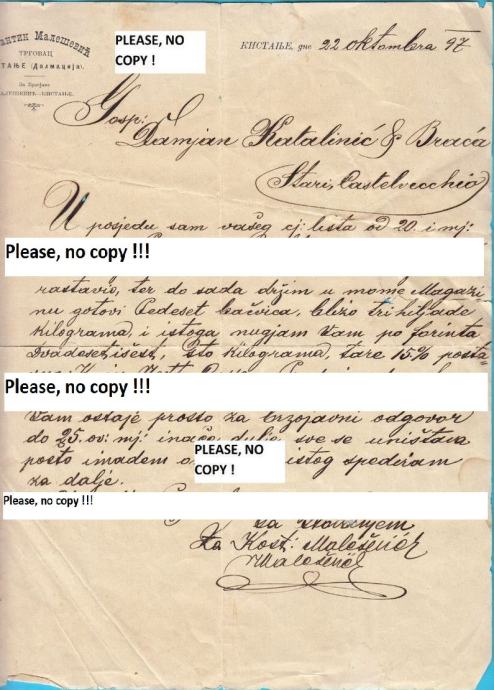 антин Малешевић
ТРГОВАЦ
ТАЊЕ (Далмација).
За Бројаве
АЛЕШЕВИЋ—КИСТАЊЕ.
PLEASE, NO
COPY !
КИСТАЊЕ, дне 22 oktombera 97
Gosp:
Damjan Katalinić & Braća
Stari, Castelvecchio
U posjedu sam vašeg cj: lista od 20. i mj:
Please, no copy !!!
rastavio, ter do sada držim u mome Magazi-
nu gotovi Pedeset bačvica, blizo tri hiljade
kilograma, i istoga nugjam Vam po forinta
Dvadesetišest, Sto kilograma, tare 15% posta-
Please, no copy !!!
Vam ostaje prosto za brzojavni odgovor
do 25. ov: mj: inače dulje sve se uništava
pošto imadem istog spediram
PLEASE, NO
COPY !
za dalje.
Please, no copy !!!
Sa štovanjem
Za Kost: Malešević
Malešević